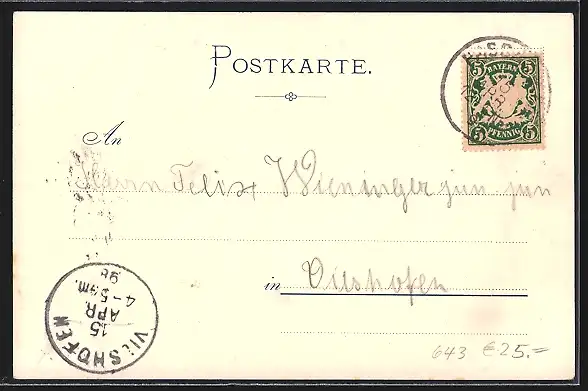 POSTKARTE.
5 BAYERN 5
5 PFENNIG 5
An
Herrn Felix Wieninger jun jun
in Vilshofen
VILSHOFEN
15
APR.
4-5Nm.
98
643 €25.=